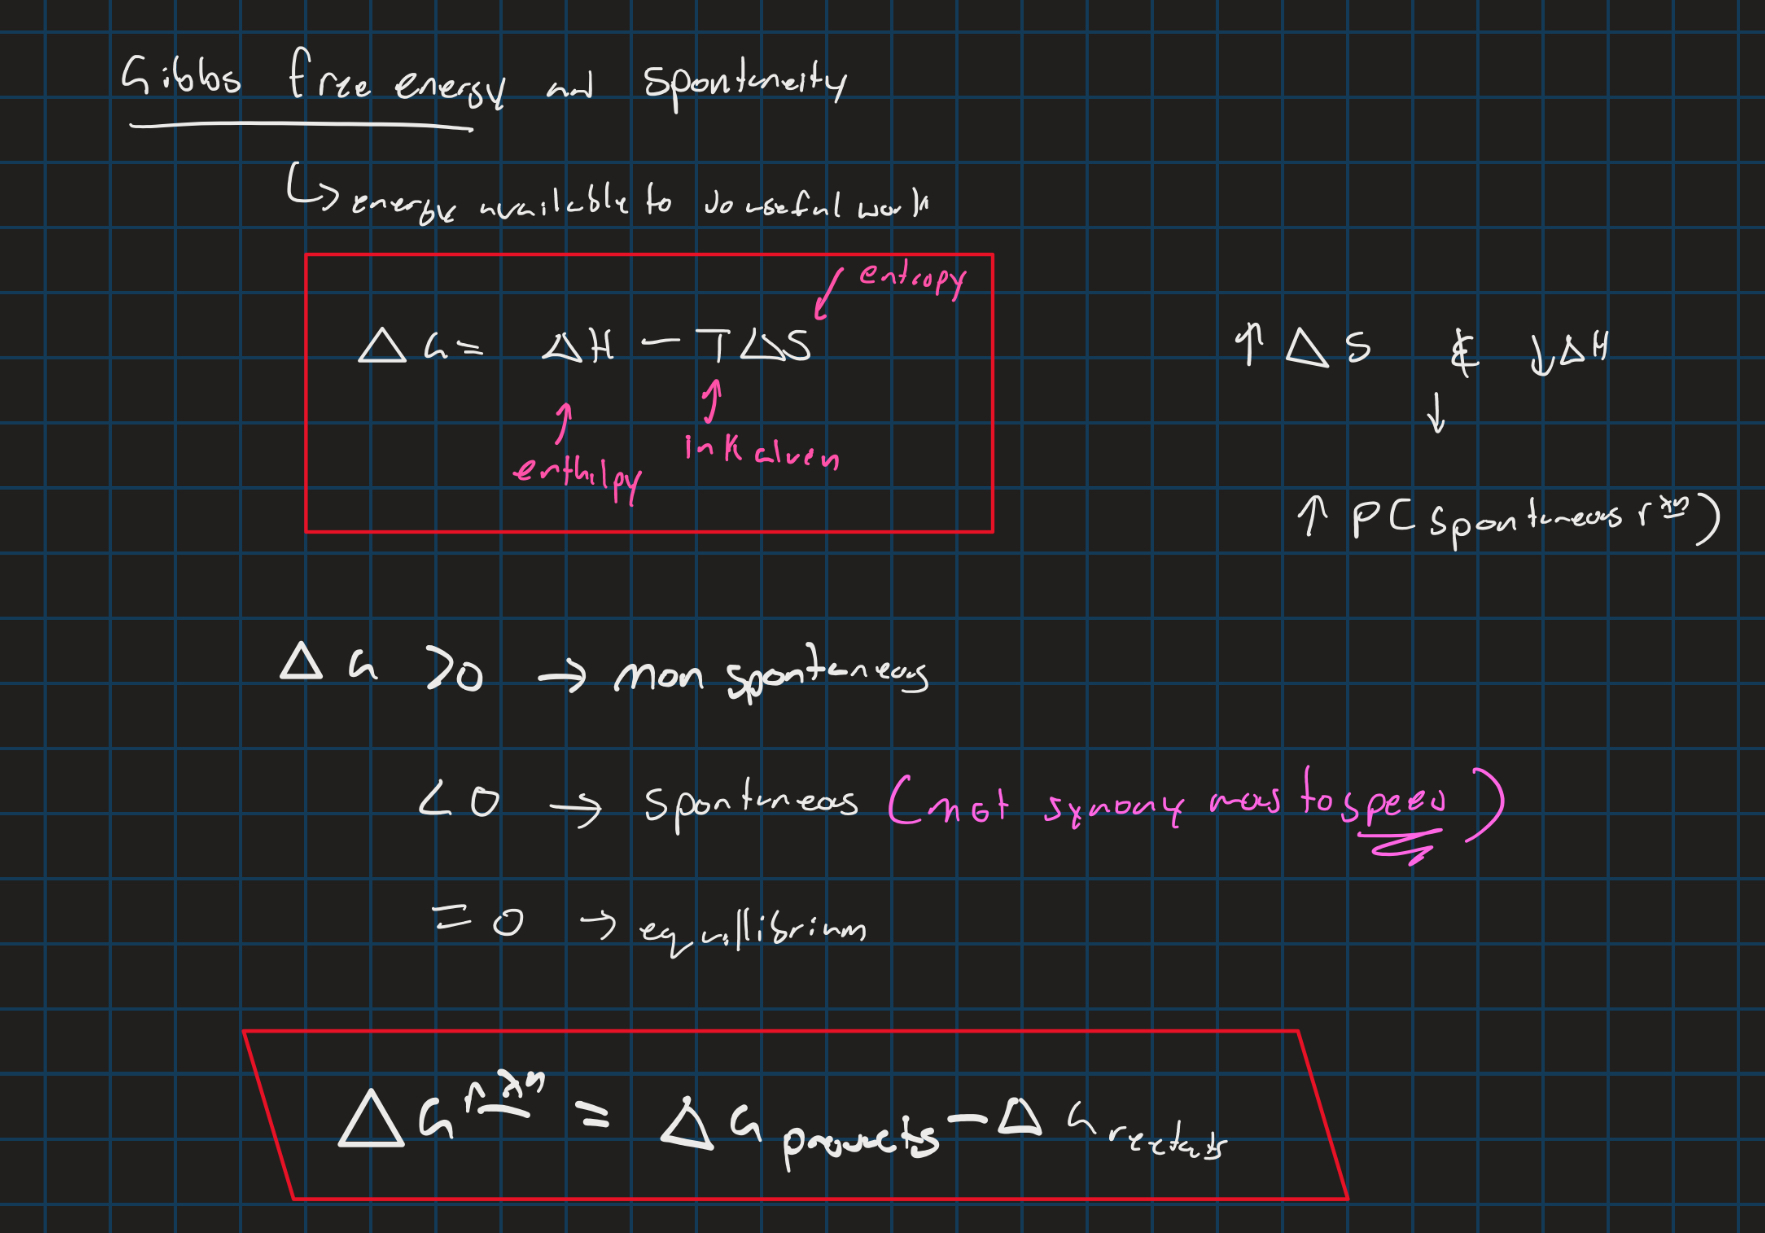 Gibbs free energy and spontaneity
↳ energy available to do useful work
entropy
ΔG = ΔH - TΔS
enthalpy
in Kelven
↑ ΔS & ↓ΔH
↓
↑ P(spontaneous rxn)
ΔG >0 → non spontaneous
<0 → spontaneous (not synonymous to speed)
=0 → equillibrium
ΔG rxn = ΔG products - ΔG reactants